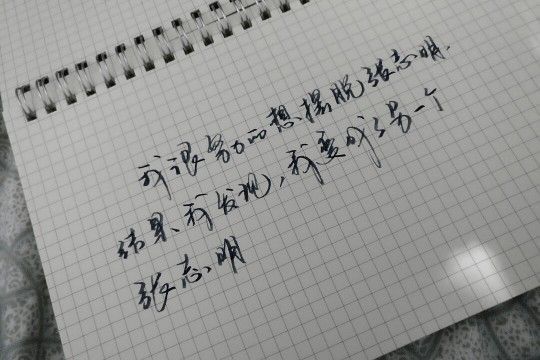 我很努力的想摆脱张志明.
结果、我发现，我变成了另一个
张志明